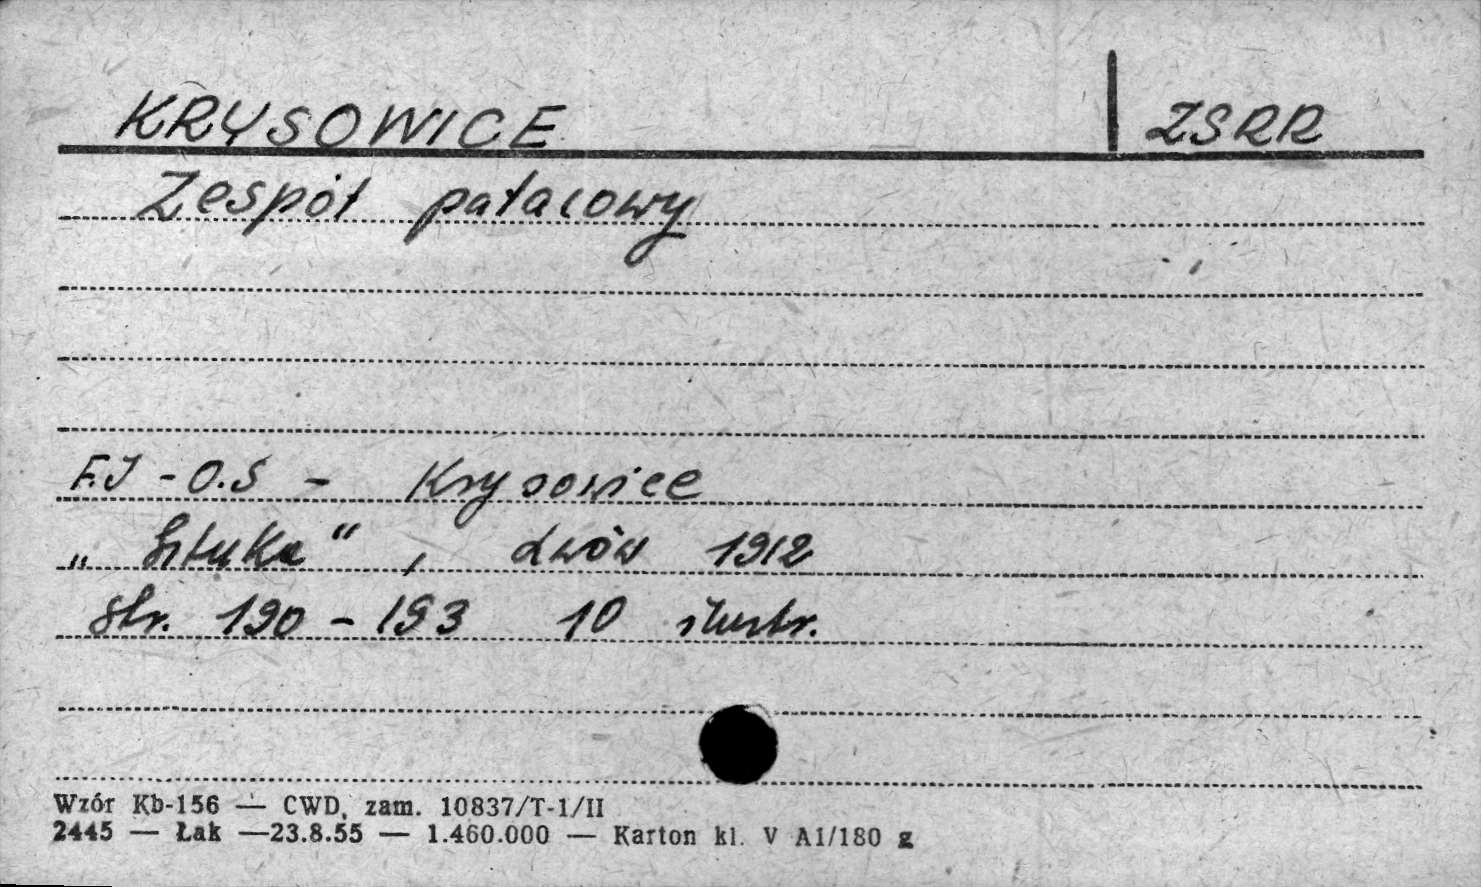 KRYSOWICE | ZSRR
Zespół pałacowy
F.J - O.S - Krysowice
„Sztuka“, Lwów 1912
str. 190 - 193 10 ilustr.
Wzór Kb-156 — CWD, zam. 10837/T-1/II
2445 — Łak —23.8.55 — 1.460.000 — Karton kl. V A1/180 g